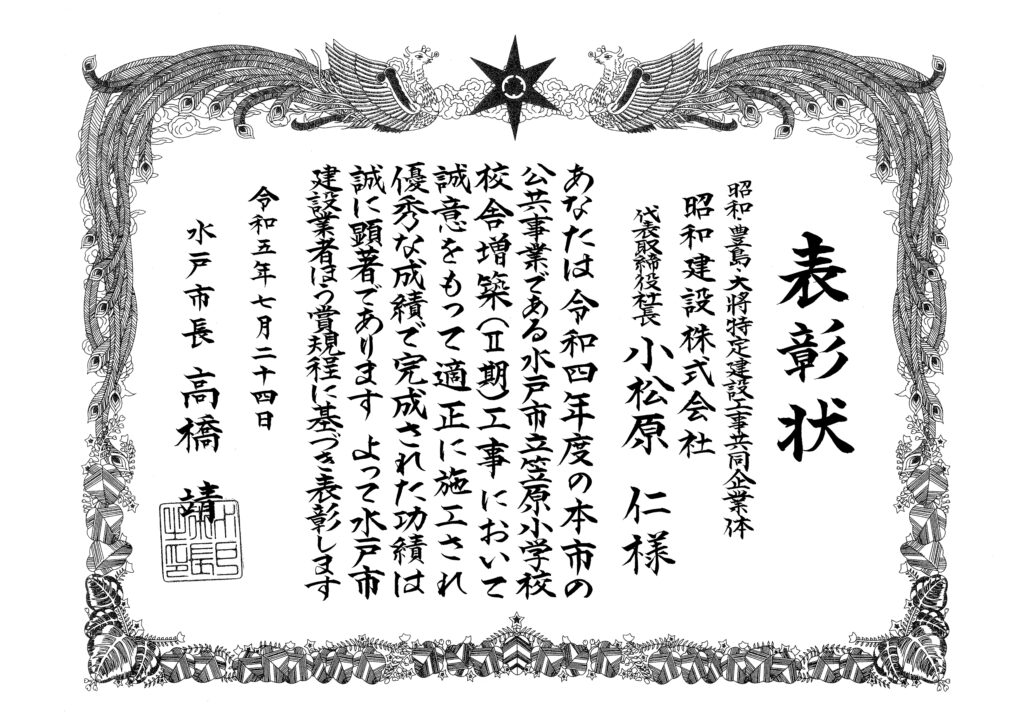 表彰状
昭和・豊島・大将特定建設工事共同企業体
昭和建設株式会社
代表取締役社長 小松原 仁様
あなたは令和四年度の本市の
公共事業である水戸市立笠原小学校
校舎増築(Ⅱ期)工事において
誠意をもって適正に施工され
優秀な成績で完成された功績は
誠に顕著であります よって水戸市
建設業者ほう賞規程に基づき表彰します
令和五年七月二十四日
水戸市長 高橋 靖